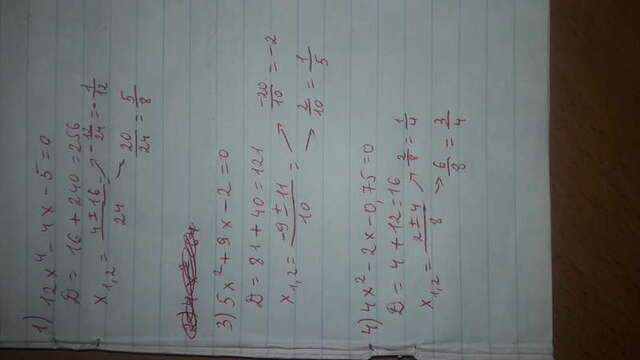 1) 12x⁴ - 4x - 5 = 0
D = 16 + 240 = 256
x₁,₂ = (4 ± 16)/24 = ↗ -12/24 = -1/12
↘ 20/24 = 5/8
3) 5x² + 9x - 2 = 0
D = 81 + 40 = 121
x₁,₂ = (-9 ± 11)/10 = ↗ -20/10 = -2
↘ 2/10 = 1/5
4) 4x² - 2x - 0,75 = 0
D = 4 + 12 = 16
x₁,₂ = (2 ± 4)/8 ↗ 2/8 = 1/4
↘ 6/8 = 3/4